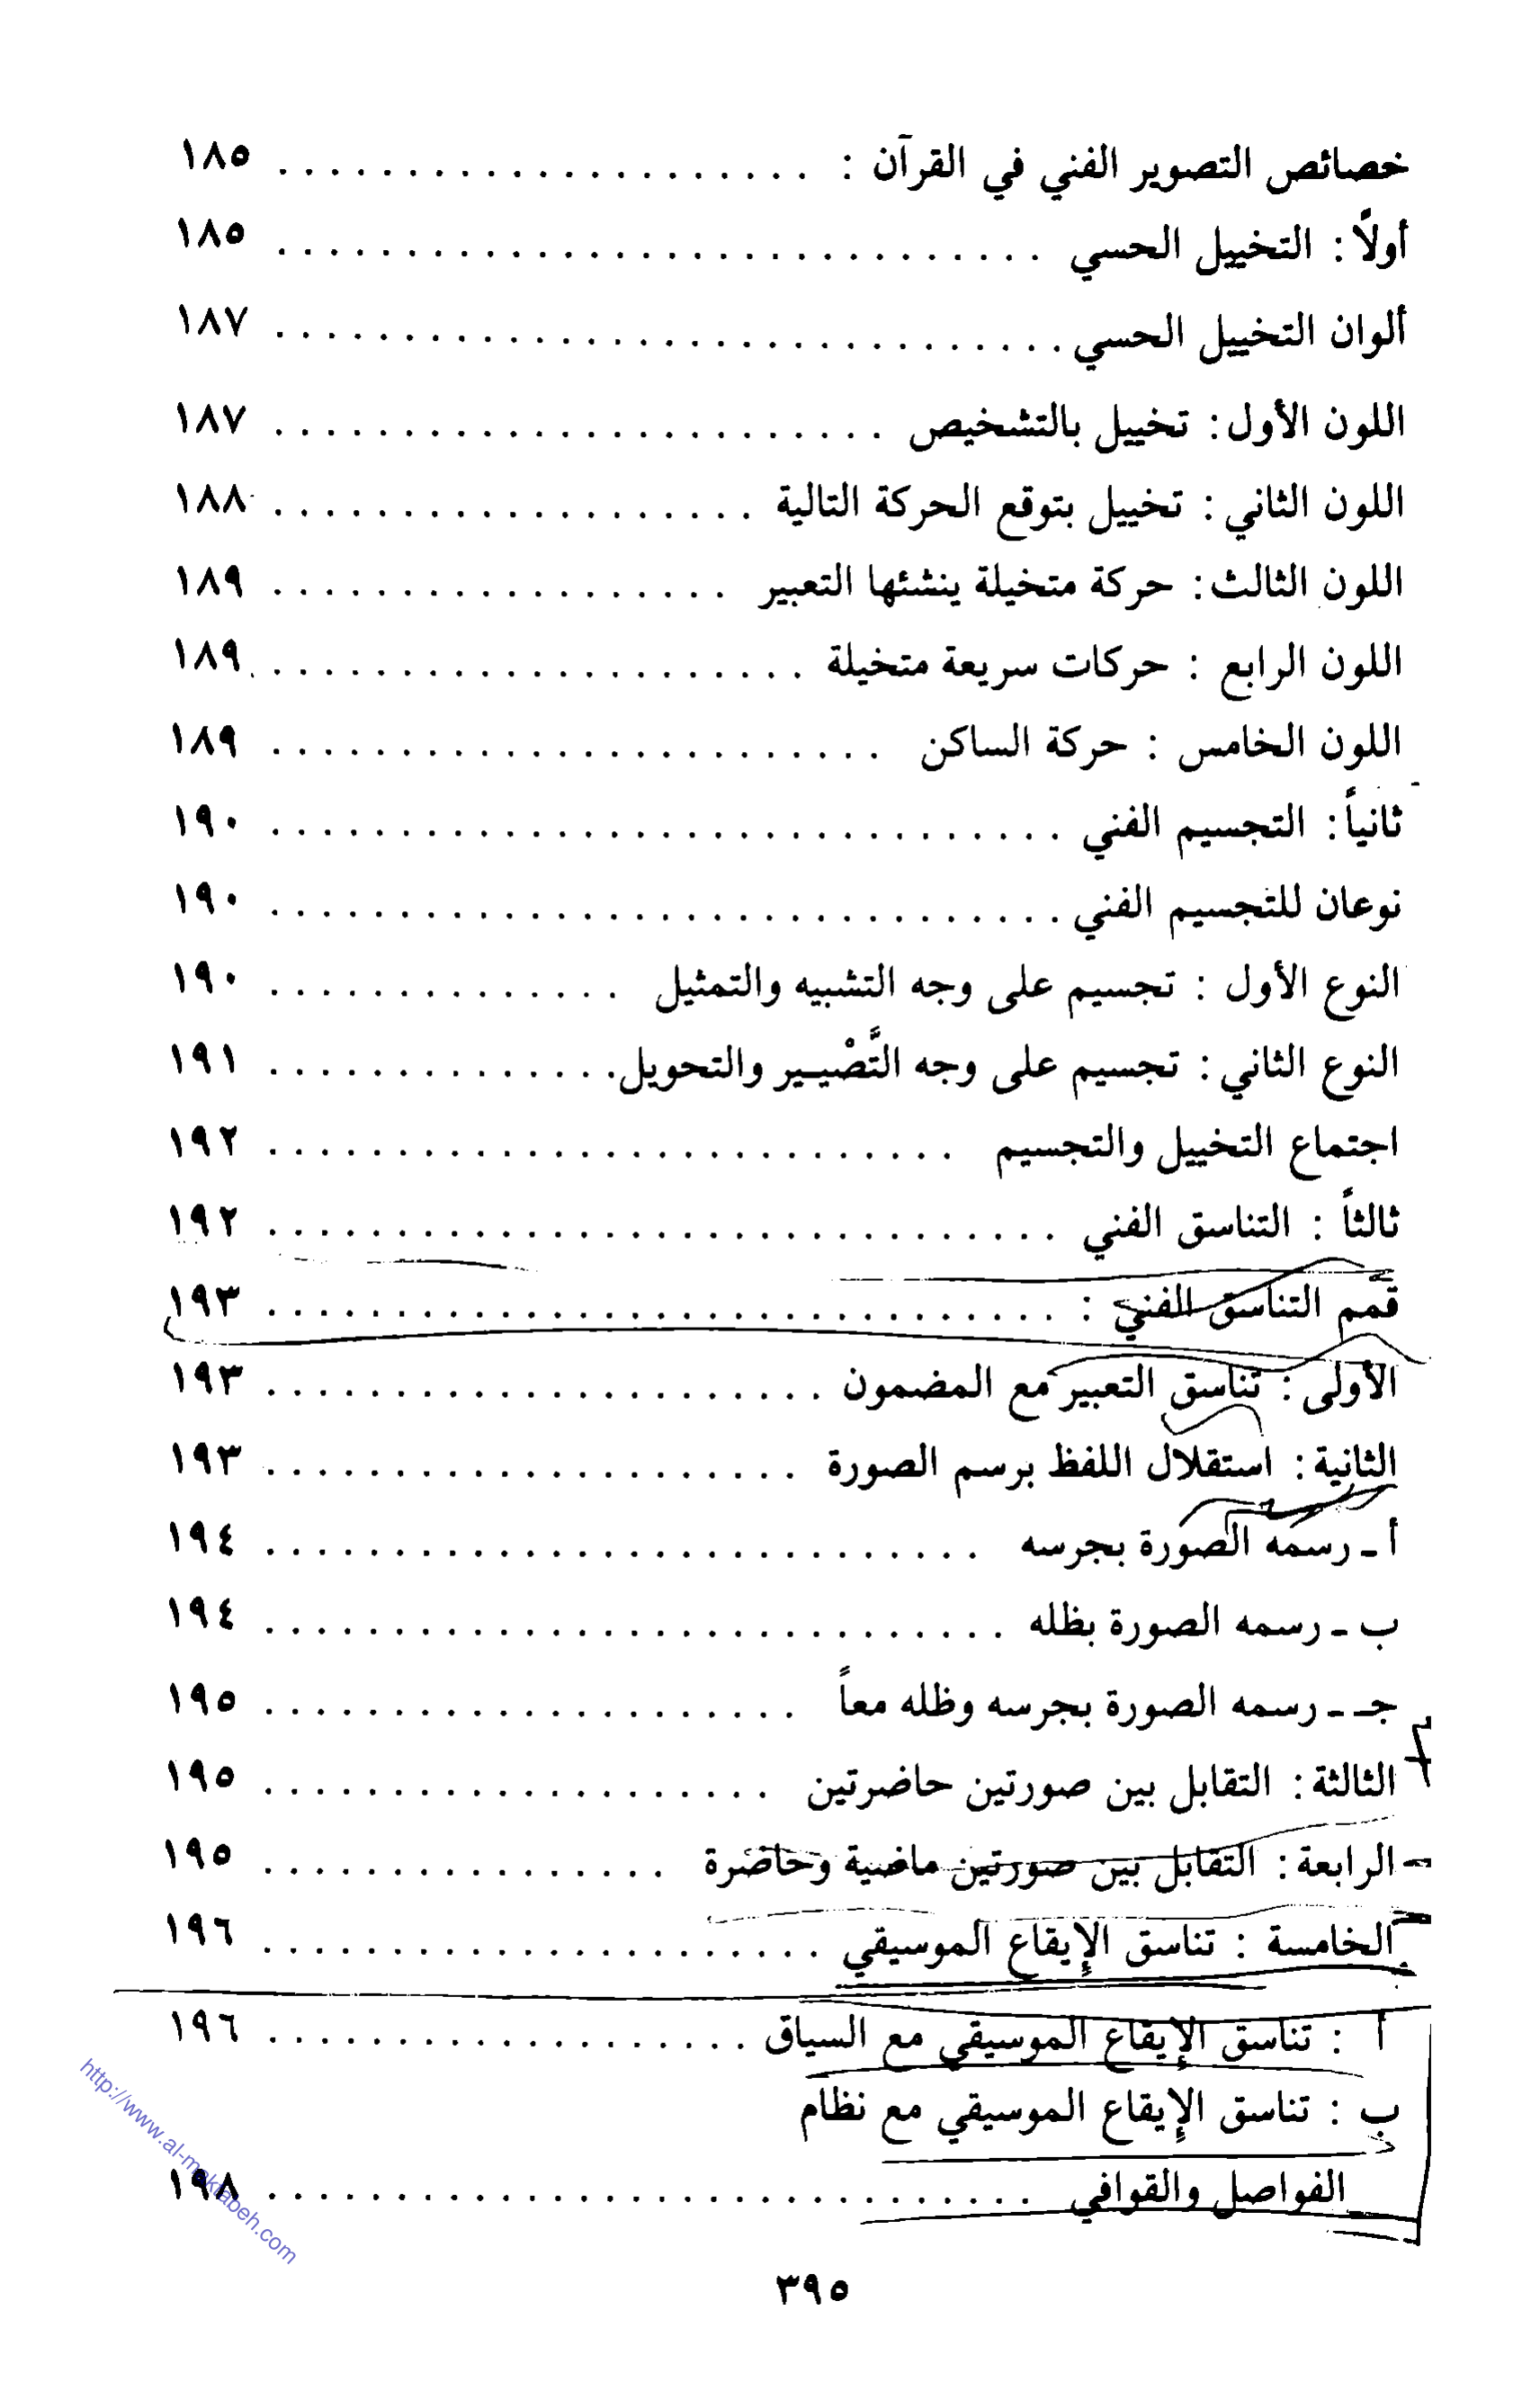 خصائص التصوير الفني في القرآن : . . . . . . . . . . . . . . . . . . . . . ١٨٥
أولاً : التخييل الحسي . . . . . . . . . . . . . . . . . . . . . . . . . . . . . . ١٨٥
ألوان التخييل الحسي . . . . . . . . . . . . . . . . . . . . . . . . . . . . . . . ١٨٧
اللون الأول : تخييل بالتشخيص . . . . . . . . . . . . . . . . . . . . . . . . ١٨٧
اللون الثاني : تخييل بتوقع الحركة التالية . . . . . . . . . . . . . . . . . . . ١٨٨
اللون الثالث : حركة متخيلة ينشئها التعبير . . . . . . . . . . . . . . . . . . ١٨٩
اللون الرابع : حركات سريعة متخيلة . . . . . . . . . . . . . . . . . . . . . ١٨٩
اللون الخامس : حركة الساكن . . . . . . . . . . . . . . . . . . . . . . . . ١٨٩
ثانياً : التجسيم الفني . . . . . . . . . . . . . . . . . . . . . . . . . . . . . . . ١٩٠
نوعان للتجسيم الفني . . . . . . . . . . . . . . . . . . . . . . . . . . . . . . . ١٩٠
النوع الأول : تجسيم على وجه التشبيه والتمثيل . . . . . . . . . . . . . . ١٩٠
النوع الثاني : تجسيم على وجه التَّصْيـير والتحويل . . . . . . . . . . . . . . ١٩١
اجتماع التخييل والتجسيم . . . . . . . . . . . . . . . . . . . . . . . . . . . ١٩٢
ثالثاً : التناسق الفني . . . . . . . . . . . . . . . . . . . . . . . . . . . . . . . ١٩٢
قمم التناسق الفني : . . . . . . . . . . . . . . . . . . . . . . . . . . . . . . . ١٩٣
الأولى : تناسق التعبير مع المضمون . . . . . . . . . . . . . . . . . . . . . . ١٩٣
الثانية : استقلال اللفظ برسم الصورة . . . . . . . . . . . . . . . . . . . . . ١٩٣
أ ـ رسمه الصورة بجرسه . . . . . . . . . . . . . . . . . . . . . . . . . . . . ١٩٤
ب ـ رسمه الصورة بظله . . . . . . . . . . . . . . . . . . . . . . . . . . . . . ١٩٤
جـ ـ رسمه الصورة بجرسه وظله معاً . . . . . . . . . . . . . . . . . . . . . ١٩٥
الثالثة : التقابل بين صورتين حاضرتين . . . . . . . . . . . . . . . . . . . . ١٩٥
الرابعة : التقابل بين صورتين ماضية وحاضرة . . . . . . . . . . . . . . . . ١٩٥
الخامسة : تناسق الإيقاع الموسيقي . . . . . . . . . . . . . . . . . . . . . . ١٩٦
أ : تناسق الإيقاع الموسيقي مع السياق . . . . . . . . . . . . . . . . . . . ١٩٦
ب : تناسق الإيقاع الموسيقي مع نظام
الفواصل والقوافي . . . . . . . . . . . . . . . . . . . . . . . . . . . . . . ١٩٨
٣٩٥
http://www.al-maktabeh.com